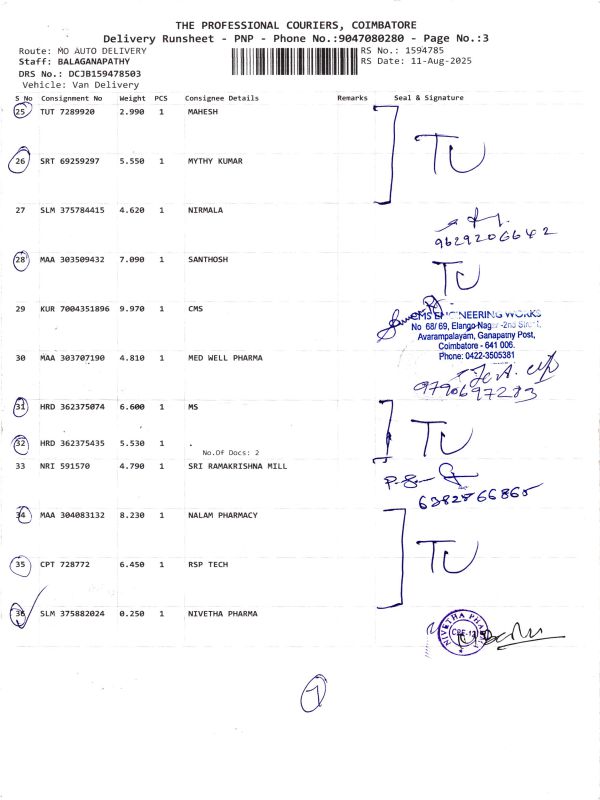 THE PROFESSIONAL COURIERS, COIMBATORE
Delivery Runsheet - PNP - Phone No.:9047080280 - Page No.:3
Route: MO AUTO DELIVERY RS No.: 1594785
Staff: BALAGANAPATHY RS Date: 11-Aug-2025
DRS No.: DCJB159478503
Vehicle: Van Delivery
S No Consignment No Weight PCS Consignee Details Remarks Seal & Signature
25 TUT 7289920 2.990 1 MAHESH
TU
26 SRT 69259297 5.550 1 MYTHY KUMAR
27 SLM 375784415 4.620 1 NIRMALA
9629206642
28 MAA 303509432 7.090 1 SANTHOSH
TU
29 KUR 7004351896 9.970 1 CMS
CMS ENGINEERING WORKS
No 68/69, Elango Nagar -2nd Street,
Avarampalayam, Ganapathy Post,
Coimbatore - 641 006.
Phone: 0422-3505381
30 MAA 303707190 4.810 1 MED WELL PHARMA
9790697283
31 HRD 362375074 6.600 1 MS
TU
32 HRD 362375435 5.530 1 .
No.Of Docs: 2
33 NRI 591570 4.790 1 SRI RAMAKRISHNA MILL
6382566865
34 MAA 304083132 8.230 1 NALAM PHARMACY
TU
35 CPT 728772 6.450 1 RSP TECH
36 SLM 375882024 0.250 1 NIVETHA PHARMA
NIVETHA PHARMA
CBE-12
7